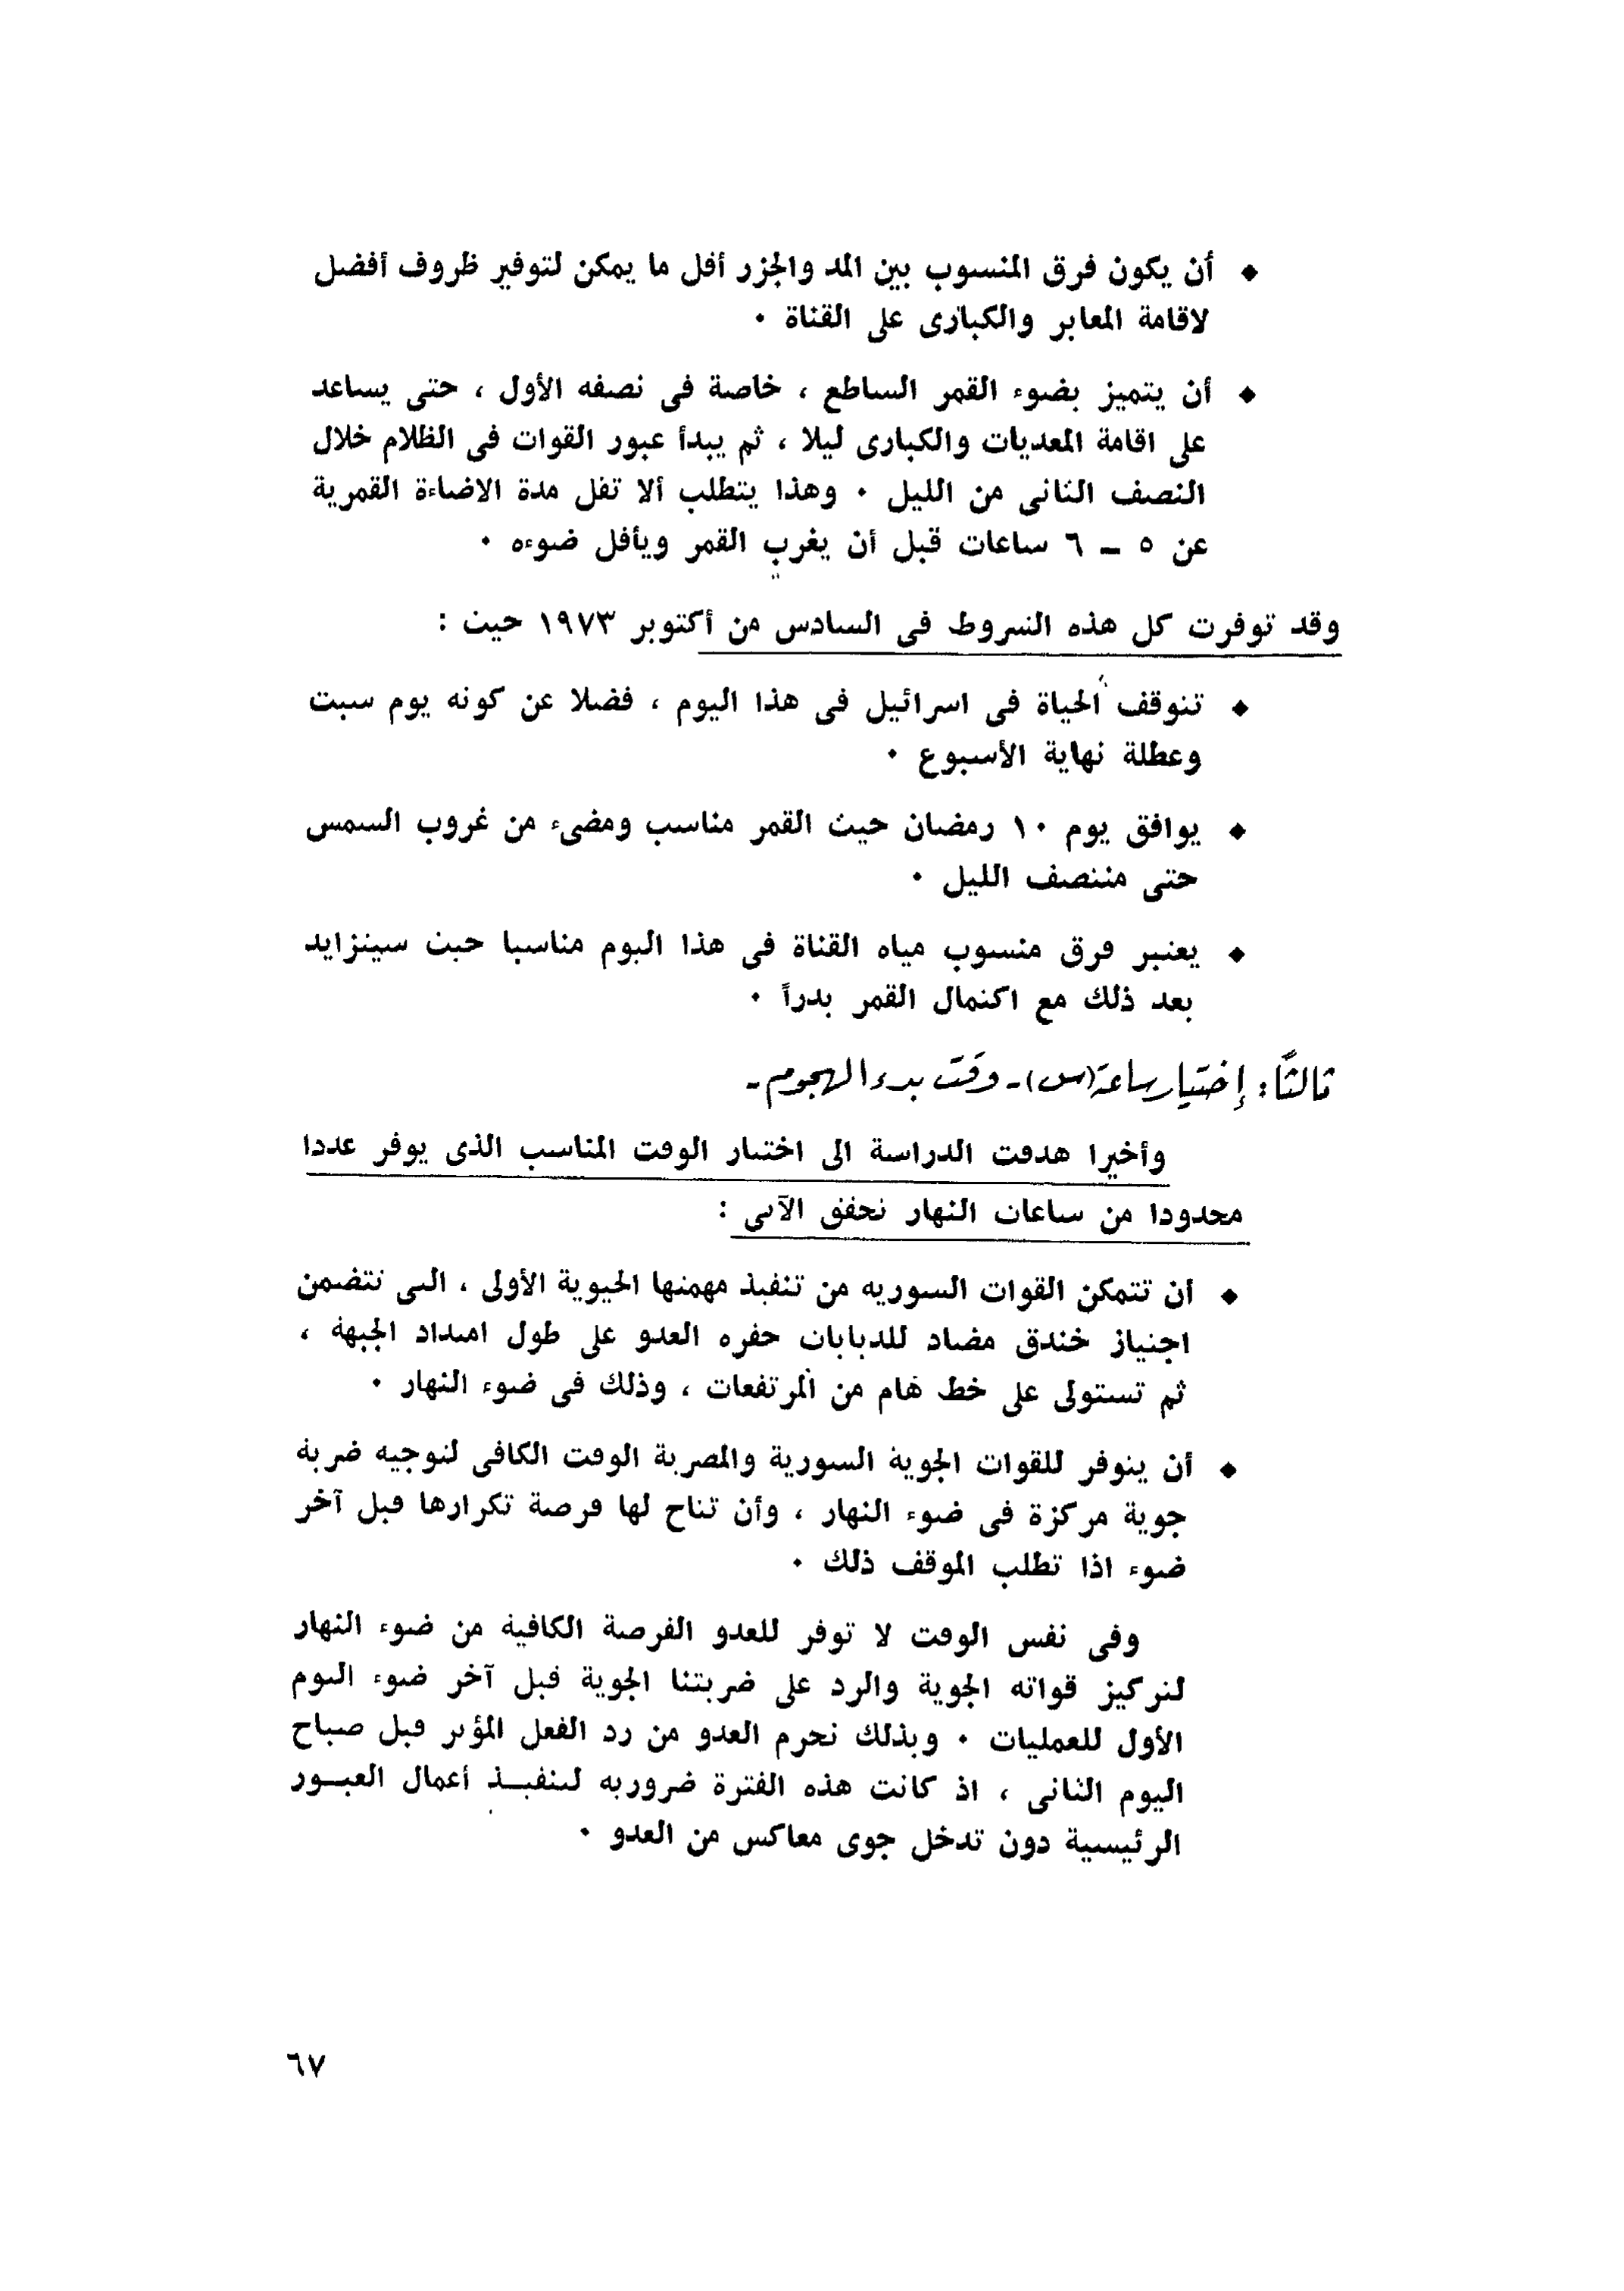 ◆ أن يكون فرق المنسوب بين المد والجزر أقل ما يمكن لتوفير ظروف أفضل
لاقامة المعابر والكبارى على القناة ٠
◆ أن يتميز بضوء القمر الساطع ، خاصة فى نصفه الأول ، حتى يساعد
على اقامة المعديات والكبارى ليلا ، ثم يبدأ عبور القوات فى الظلام خلال
النصف الثانى من الليل ٠ وهذا يتطلب ألا تقل مدة الاضاءة القمرية
عن ٥ – ٦ ساعات قبل أن يغرب القمر ويأفل ضوءه ٠
وقد توفرت كل هذه الشروط فى السادس من أكتوبر ١٩٧٣ حيث :
◆ تتوقف الحياة فى اسرائيل فى هذا اليوم ، فضلا عن كونه يوم سبت
وعطلة نهاية الأسبوع ٠
◆ يوافق يوم ١٠ رمضان حيث القمر مناسب ومضىء من غروب الشمس
حتى منتصف الليل ٠
◆ يعتبر فرق منسوب مياه القناة فى هذا اليوم مناسبا حيث سيتزايد
بعد ذلك مع اكتمال القمر بدراً ٠
ثالثاً : إختيار ساعة (س) - وقت بدء الهجوم -
وأخيرا هدفت الدراسة الى اختيار الوقت المناسب الذى يوفر عددا
محدودا من ساعات النهار تحقق الآتى :
◆ أن تتمكن القوات السوريه من تنفيذ مهمتها الحيوية الأولى ، التى تتضمن
اجتياز خندق مضاد للدبابات حفره العدو على طول امتداد الجبهة ،
ثم تستولى على خط هام من المرتفعات ، وذلك فى ضوء النهار ٠
◆ أن يتوفر للقوات الجوية السورية والمصرية الوقت الكافى لتوجيه ضربة
جوية مركزة فى ضوء النهار ، وأن تتاح لها فرصة تكرارها قبل آخر
ضوء اذا تطلب الموقف ذلك ٠
وفى نفس الوقت لا توفر للعدو الفرصة الكافية من ضوء النهار
لتركيز قواته الجوية والرد على ضربتنا الجوية قبل آخر ضوء اليوم
الأول للعمليات ٠ وبذلك نحرم العدو من رد الفعل المؤثر قبل صباح
اليوم الثانى ، اذ كانت هذه الفترة ضروريه لتنفيـــذ أعمال العبـــور
الرئيسية دون تدخل جوى معاكس من العدو ٠
٦٧